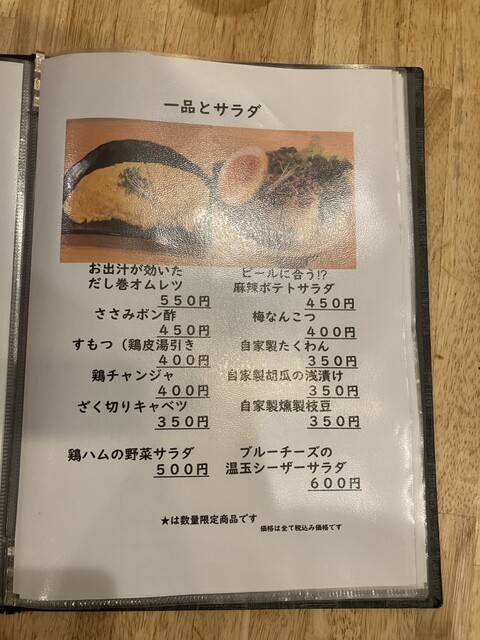 一品とサラダ
お出汁が効いた
だし巻オムレツ
550円
ささみポン酢
450円
すもつ（鶏皮湯引き
400円
鶏チャンジャ
400円
ざく切りキャベツ
350円
鶏ハムの野菜サラダ
500円
ビールに合う!?
麻辣ポテトサラダ
450円
梅なんこつ
400円
自家製たくわん
350円
自家製胡瓜の浅漬け
350円
自家製燻製枝豆
350円
ブルーチーズの
温玉シーザーサラダ
600円
★は数量限定商品です
価格は全て税込み価格です